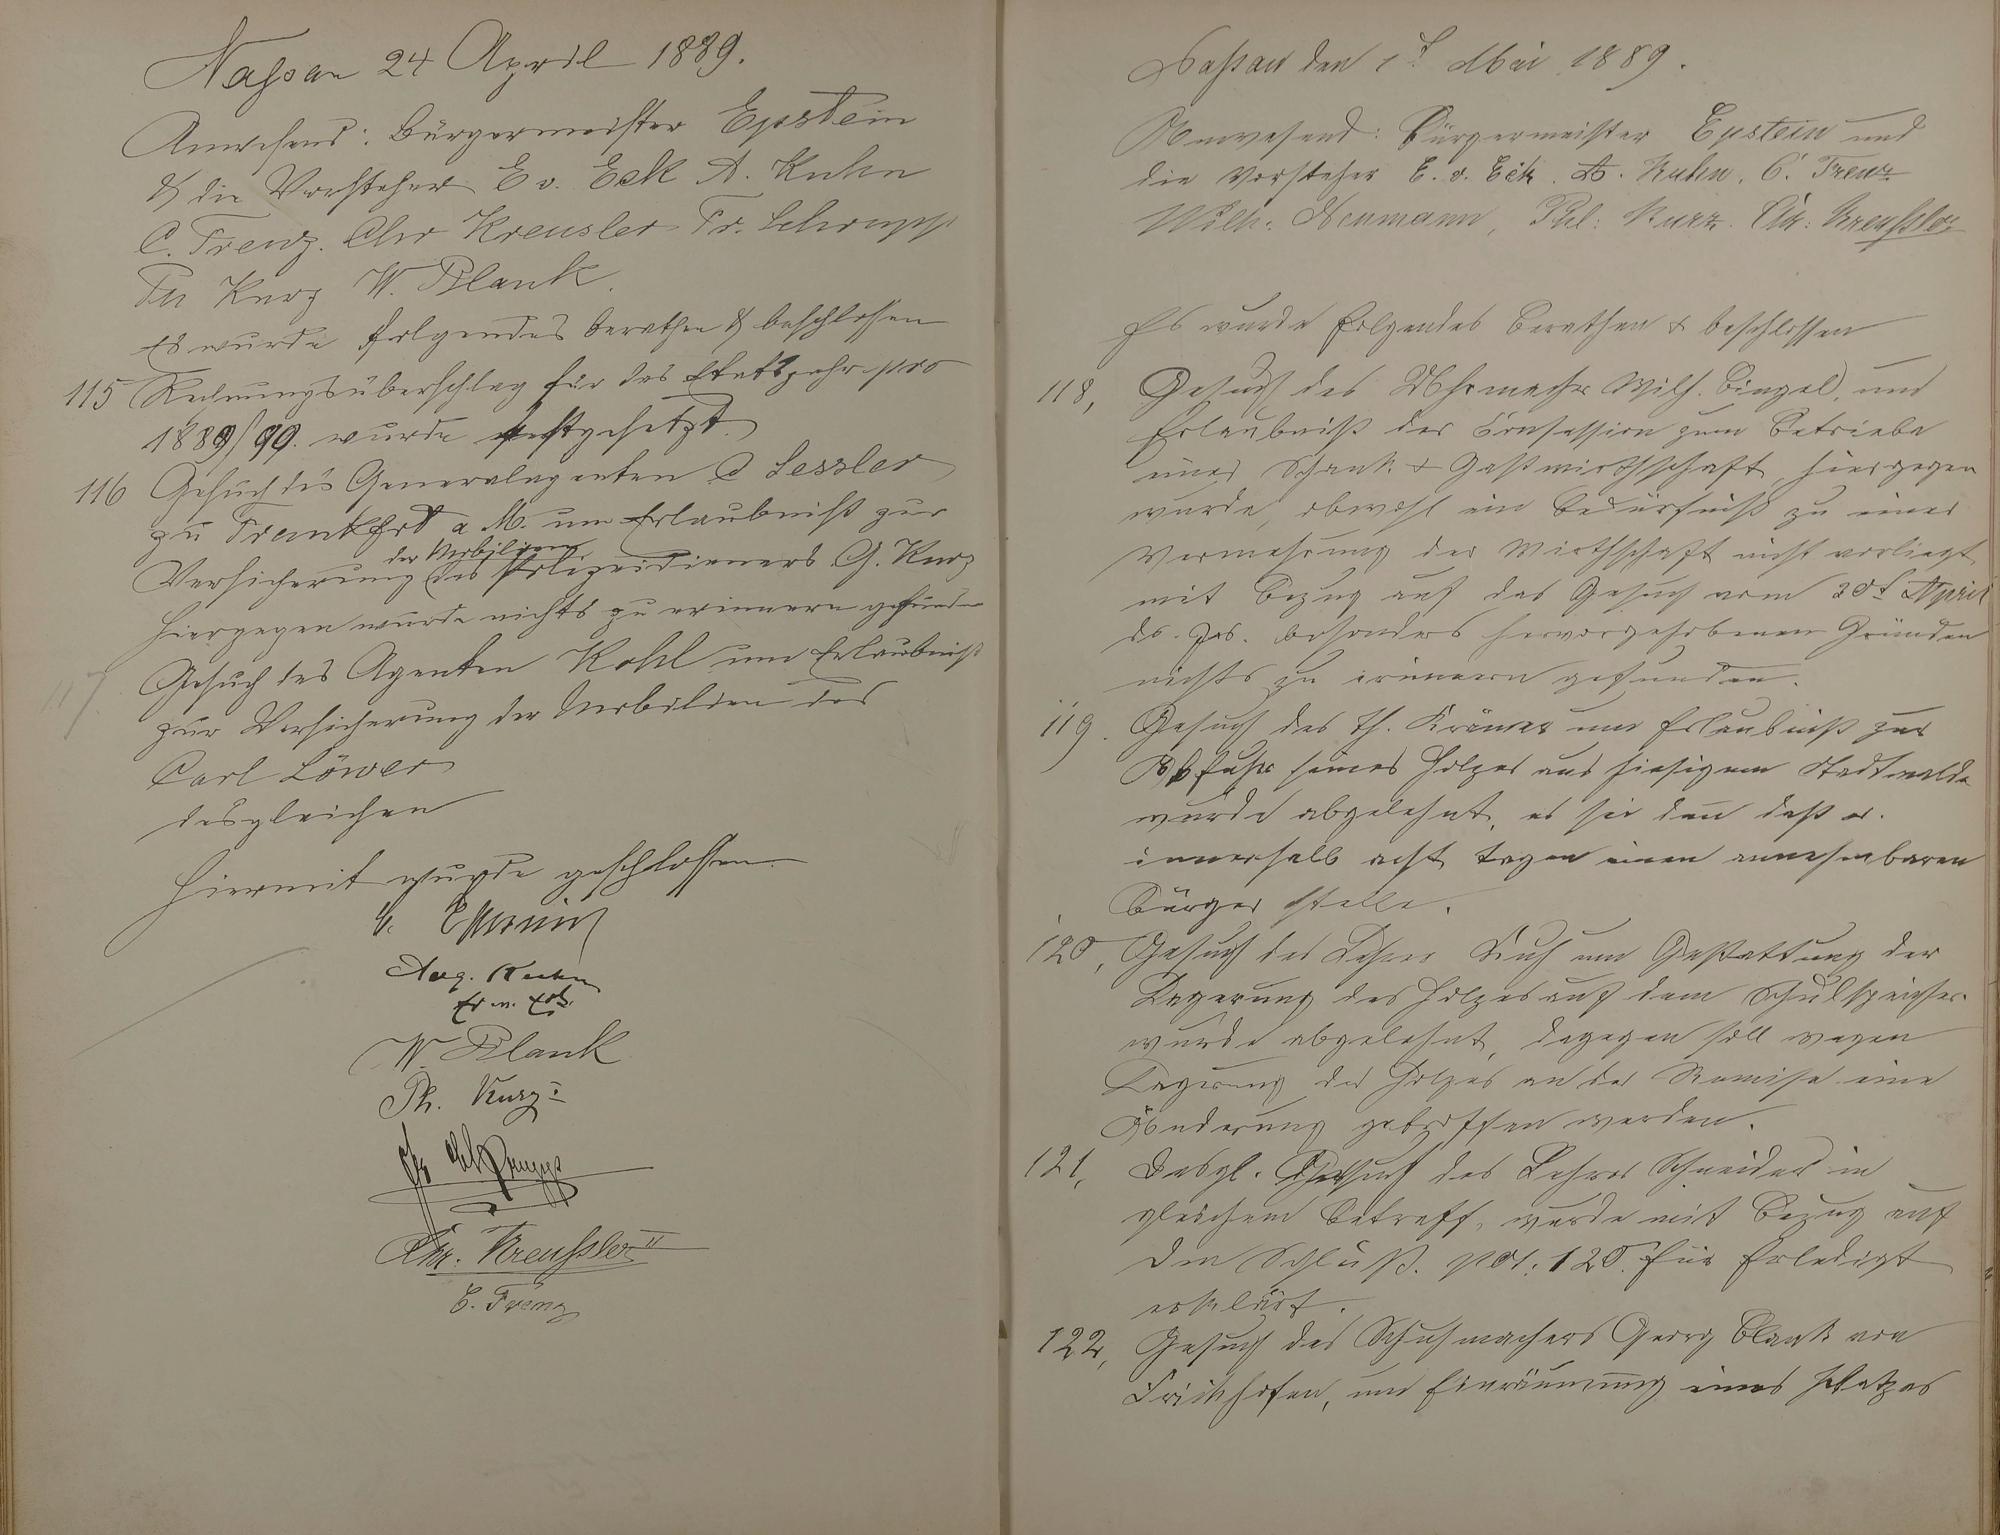 Nassau 24 April 1889.
Anwesend: Bürgermeister Epstein
& die Vorsteher E v. Eck A. Kuhn
C. Trenz. Chr Kreusler Fr. Schrupp
Ph Kurz W. Blank.
Es wurde folgendes berathen & beschlossen
115 Rechnungsüberschlag für das Etatsjahr pro
1889/90. wurde festgesetzt.
116 Gesuch des Generalagenten C Sessler
zu Frankfurt a M. um Erlaubniß zur
der Mobilien
Versicherung des Polizeidieners G. Kurz
hiergegen wurde nichts zu erinnern gefunden
117. Gesuch des Agenten Kohl um Erlaubniß
zur Versicherung der Mobilien des
Carl Löwer
desgleichen
Hiermit wurde geschlossen.
Epstein
Aug. Kuhn
E. v. Eck
W. Blank
Ph. Kurz
Schrupp
Chr. Kreußler II
C. Trenz
Nassau den 1t Mai 1889.
Anwesend: Bürgermeister Epstein und
die Vorsteher E. v. Eck. A. Kuhn. C. Trenz
Wilh. Neumann, Phl: Kurz. Chr: Kreußler
Es wurde folgendes berathen & beschlossen
118, Gesuch des Uhrmacher Wilh. Bingel, um
Erlaubniß der Consession zum Betriebe
einer Schank & Gastwirthschaft, hiergegen
wurde, obwohl ein Bedürfniß zu einer
Vermehrung der Wirthschaft nicht vorliegt
mit Bezug auf das Gesuch vom 30t April
ds. Jrs. besonders hervorgehobenen Gründen
nichts zu erinnern gefunden.
119. Gesuch des Th. Krämer um Erlaubniß zur
Abfuhr seines Holzes aus hiesigem Stadtwalde
wurde abgelehnt, es sei denn daß er.
innerhalb acht Tagen einen annehmbaren
Bürger stelle.
120, Gesuch des Lehrer Kuch um Gestattung der
Lagerung des Holzes auf dem Schulspeicher
wurde abgelehnt, dagegen soll wegen
Lagerung des Holzes an der Remise eine
Änderung getroffen werden.
121, Desgl. Gesuch des Lehrer Schneider in
gleichem Betreff, wurde mit Bezug auf
den Schluß. pos: 120. für Erledigt
erklärt.
122, Gesuch des Schuhmachers Georg Blank von
Frickhofen, um Einräumung eines Platzes